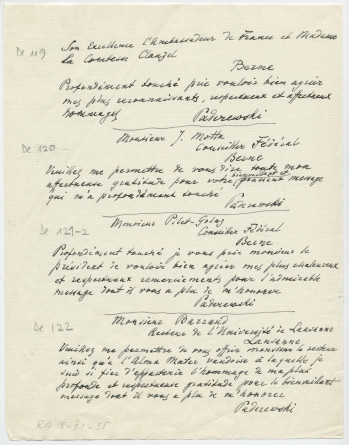 De 119
Son Excellence l'Ambassadeur de France et Madame
La Comtesse Clauzel
Berne
Profondément touché prie vouloir bien agréer
mes plus reconnaissants, respectueux et affectueux
hommages
Paderewski
De 120
Monsieur J. Motta
Conseiller Fédéral
Berne
Veuillez me permettre de vous dire toute mon
affectueuse gratitude pour votre bienveillant message
qui m'a profondément touché
Paderewski
De 121-2
Monsieur Pilet-Golaz
Conseiller Fédéral
Berne
Profondément touché je vous prie monsieur le
président de vouloir bien agréer mes plus chaleureux
et respectueux remerciements pour l'admirable
message dont il vous a plu de m'honorer
Paderewski
De 122
Monsieur Barraud
Recteur de l'Université de Lausanne
Lausanne
Veuillez me permettre de vous offrir monsieur le recteur
ainsi qu'à l'Alma Mater vaudoise à laquelle je
suis si fier d'appartenir l'hommage de ma plus
profonde et respectueuse gratitude pour le bienveillant
message dont il vous a plu de m'honorer
Paderewski